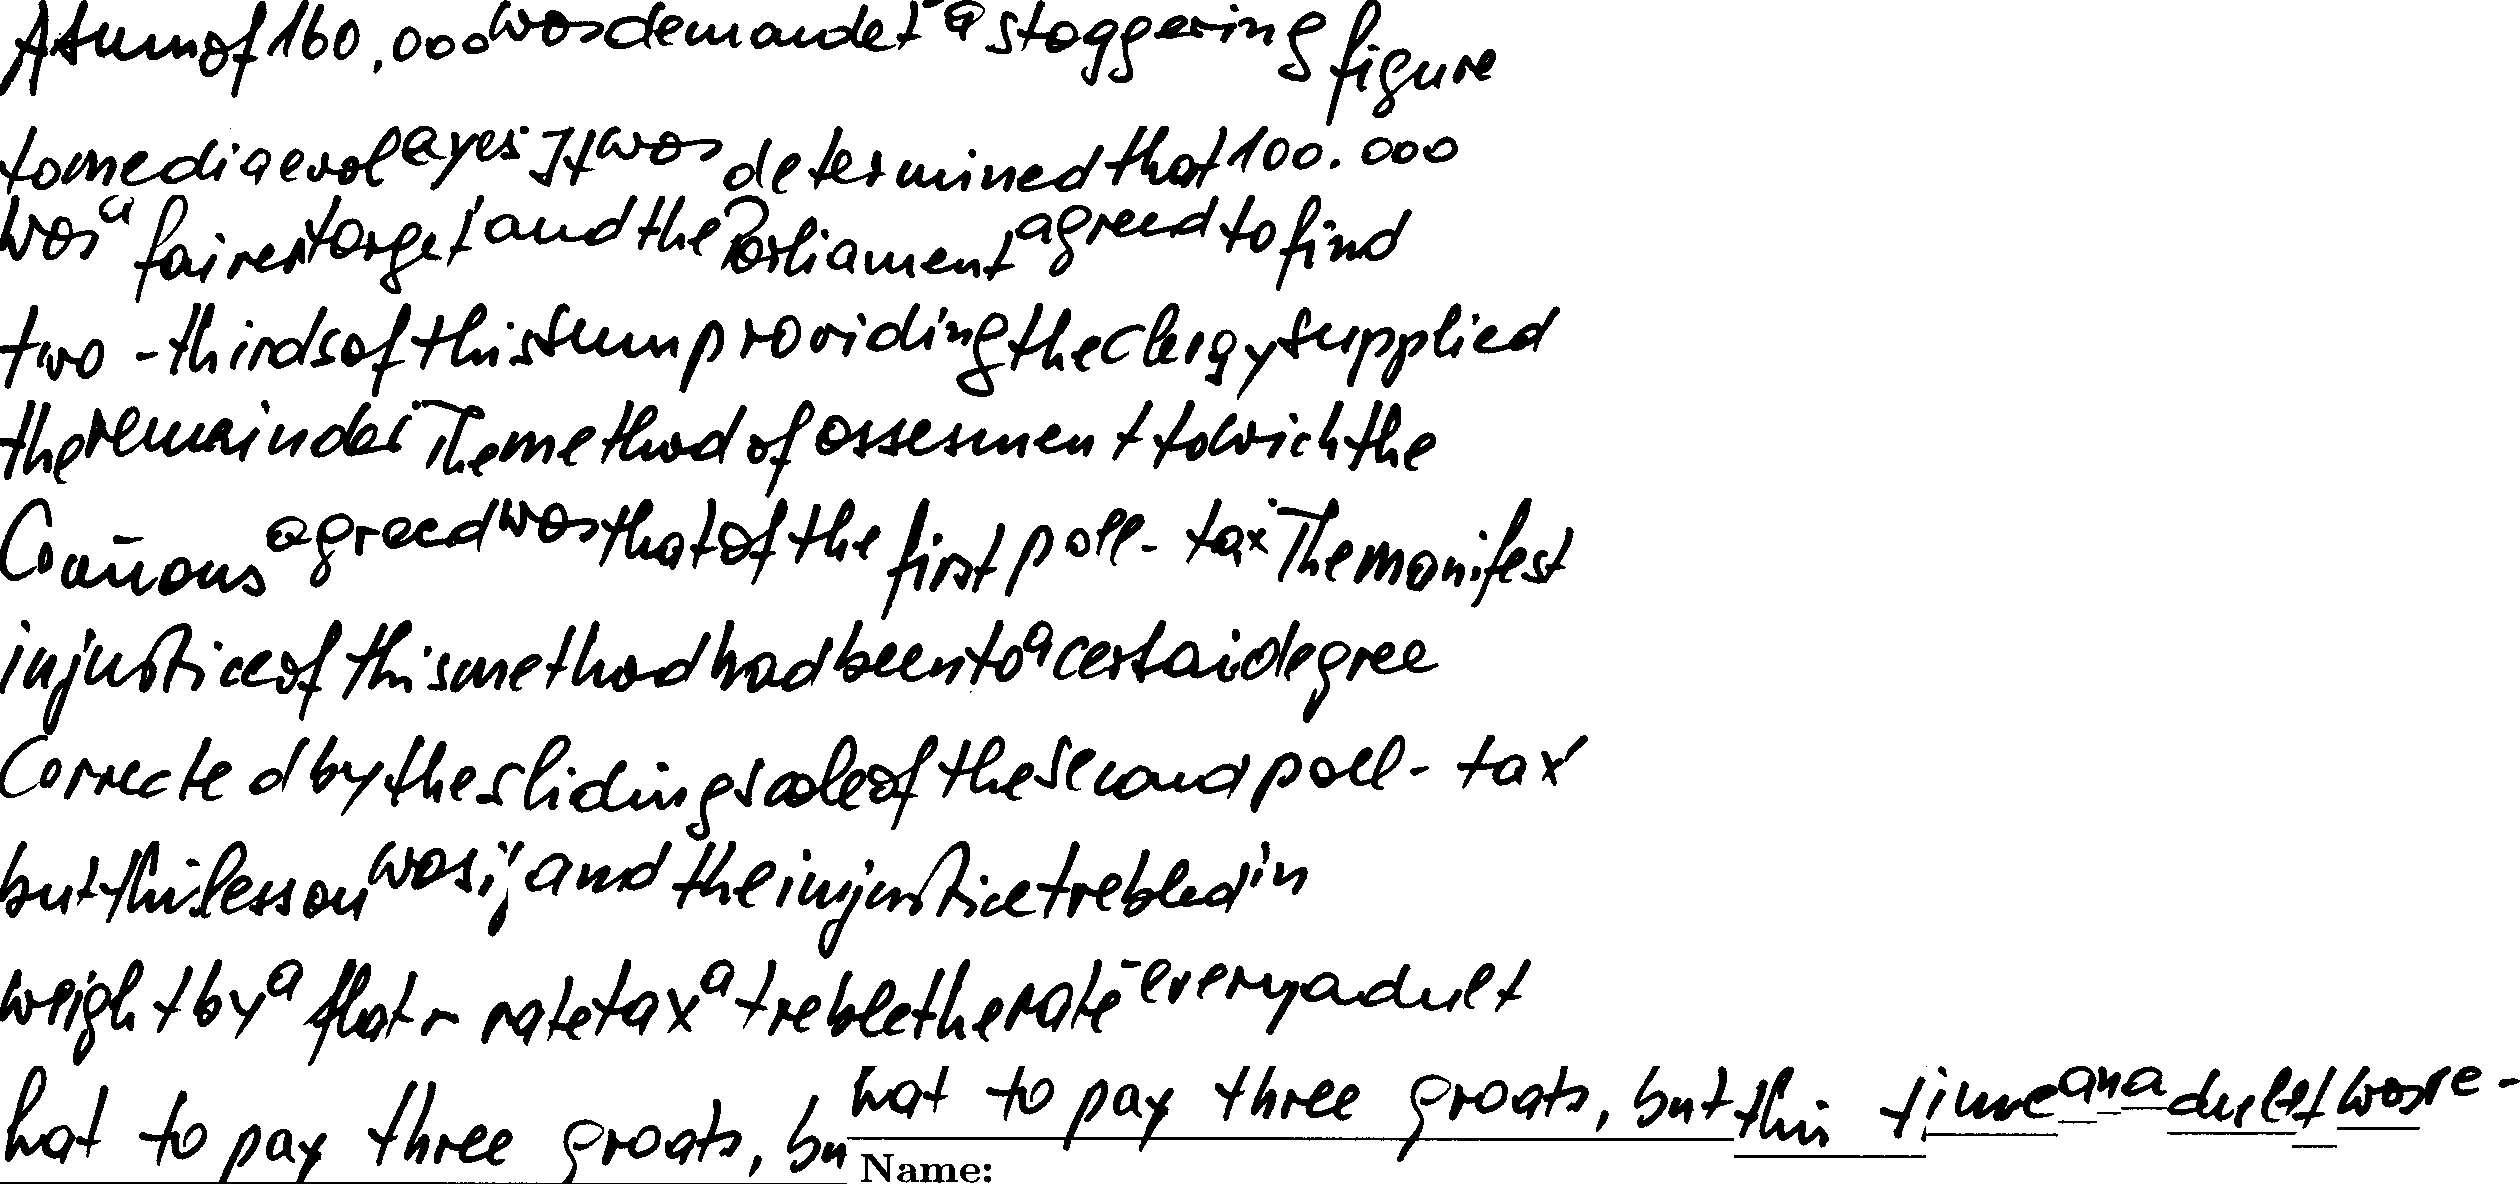 A sum of 160,000 was demandet - a staggering figure
to mediaeval ayes. It was determined that 100.000
was a fairer target and the Parliament agreed to find
two-thirds of this sum providing the Clergy supplied
the remainder. The method of assesment to wich the
Com̄ons agreed was that of the first poll-tax. The manifest
injustice of this method had been to a certai degree
Corrected by the sliding scale of the second poll-tax
but this lesson was ij and the injustice trebled in
weight by a flat-rate tax a treble the rate - every adult
hat to pay three groats, but this time an adullt was re-
hat to pay three groats, bu
Name: